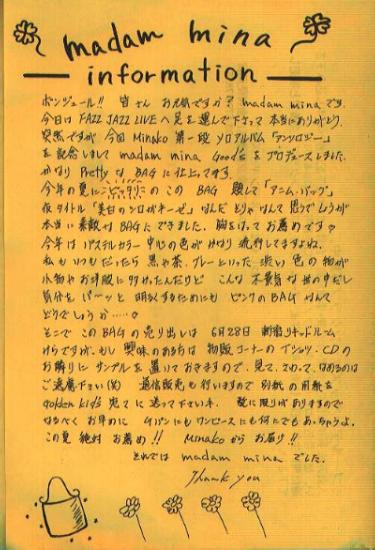 madam mina
information
ボンジュール!! 皆さん お元気ですか? madam minaです。
今日は FAZZ JAZZ LIVEへ足を運んで下さって本当にありがとう。
突然ですが 今回 Minako 第一段 ソロアルバム「アンソロジー」
を記念しまして madam mina Goodsを プロデュースしました。
かなり Prettyな BAGに仕上ってます。
今年の夏にピッタリの この BAG 題して「アニム・バッグ」
本当に素敵なBAGにできました。胸をはってお薦めです♡
今年は パステルカラー 中心の色が かなり 流行してますよね。
私も いつもだったら 黒や茶、グレーといった 渋い色の物が
小物やお洋服に多かったんだけど こんな不景気な世の中だし
気分を パーッと 明るくするためにも ピンクのBAGなんて
どうでしょうか……♡
そこで このBAGの売り出しは 6月28日 新宿リキッドルーム
からですが、もし 興味のある方は 物販コーナーのTシャツ・CDの
お隣りに サンプルを 置いておきますので、見て、さわって、
ご遠慮下さい(笑) 通信販売も行いますので 別紙の用紙を
golden kid's 宛てに 送って下さいネ。 数に限りがありますので
なるべく お早めに
この夏 絶対 お薦め!! Minakoから お届り!!
それでは madam mina でした。
Thank you